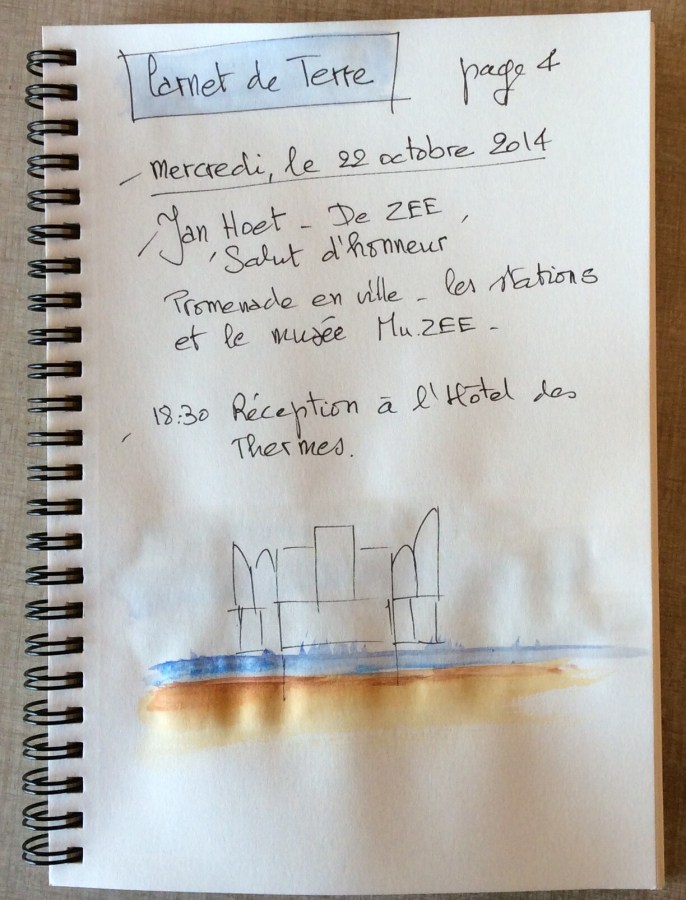 Carnet de Terre page 4
mercredi, le 22 octobre 2014
Jan Hoet - De ZEE,
Salut d'honneur
Promenade en ville - les stations
et le musée Mu.ZEE -
18:30 Réception à l'Hôtel des
Thermes.